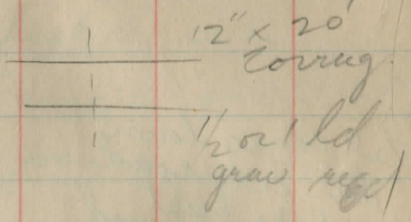 12" x 20'
Corrug.
1/2 or 1 ld
grav reqd